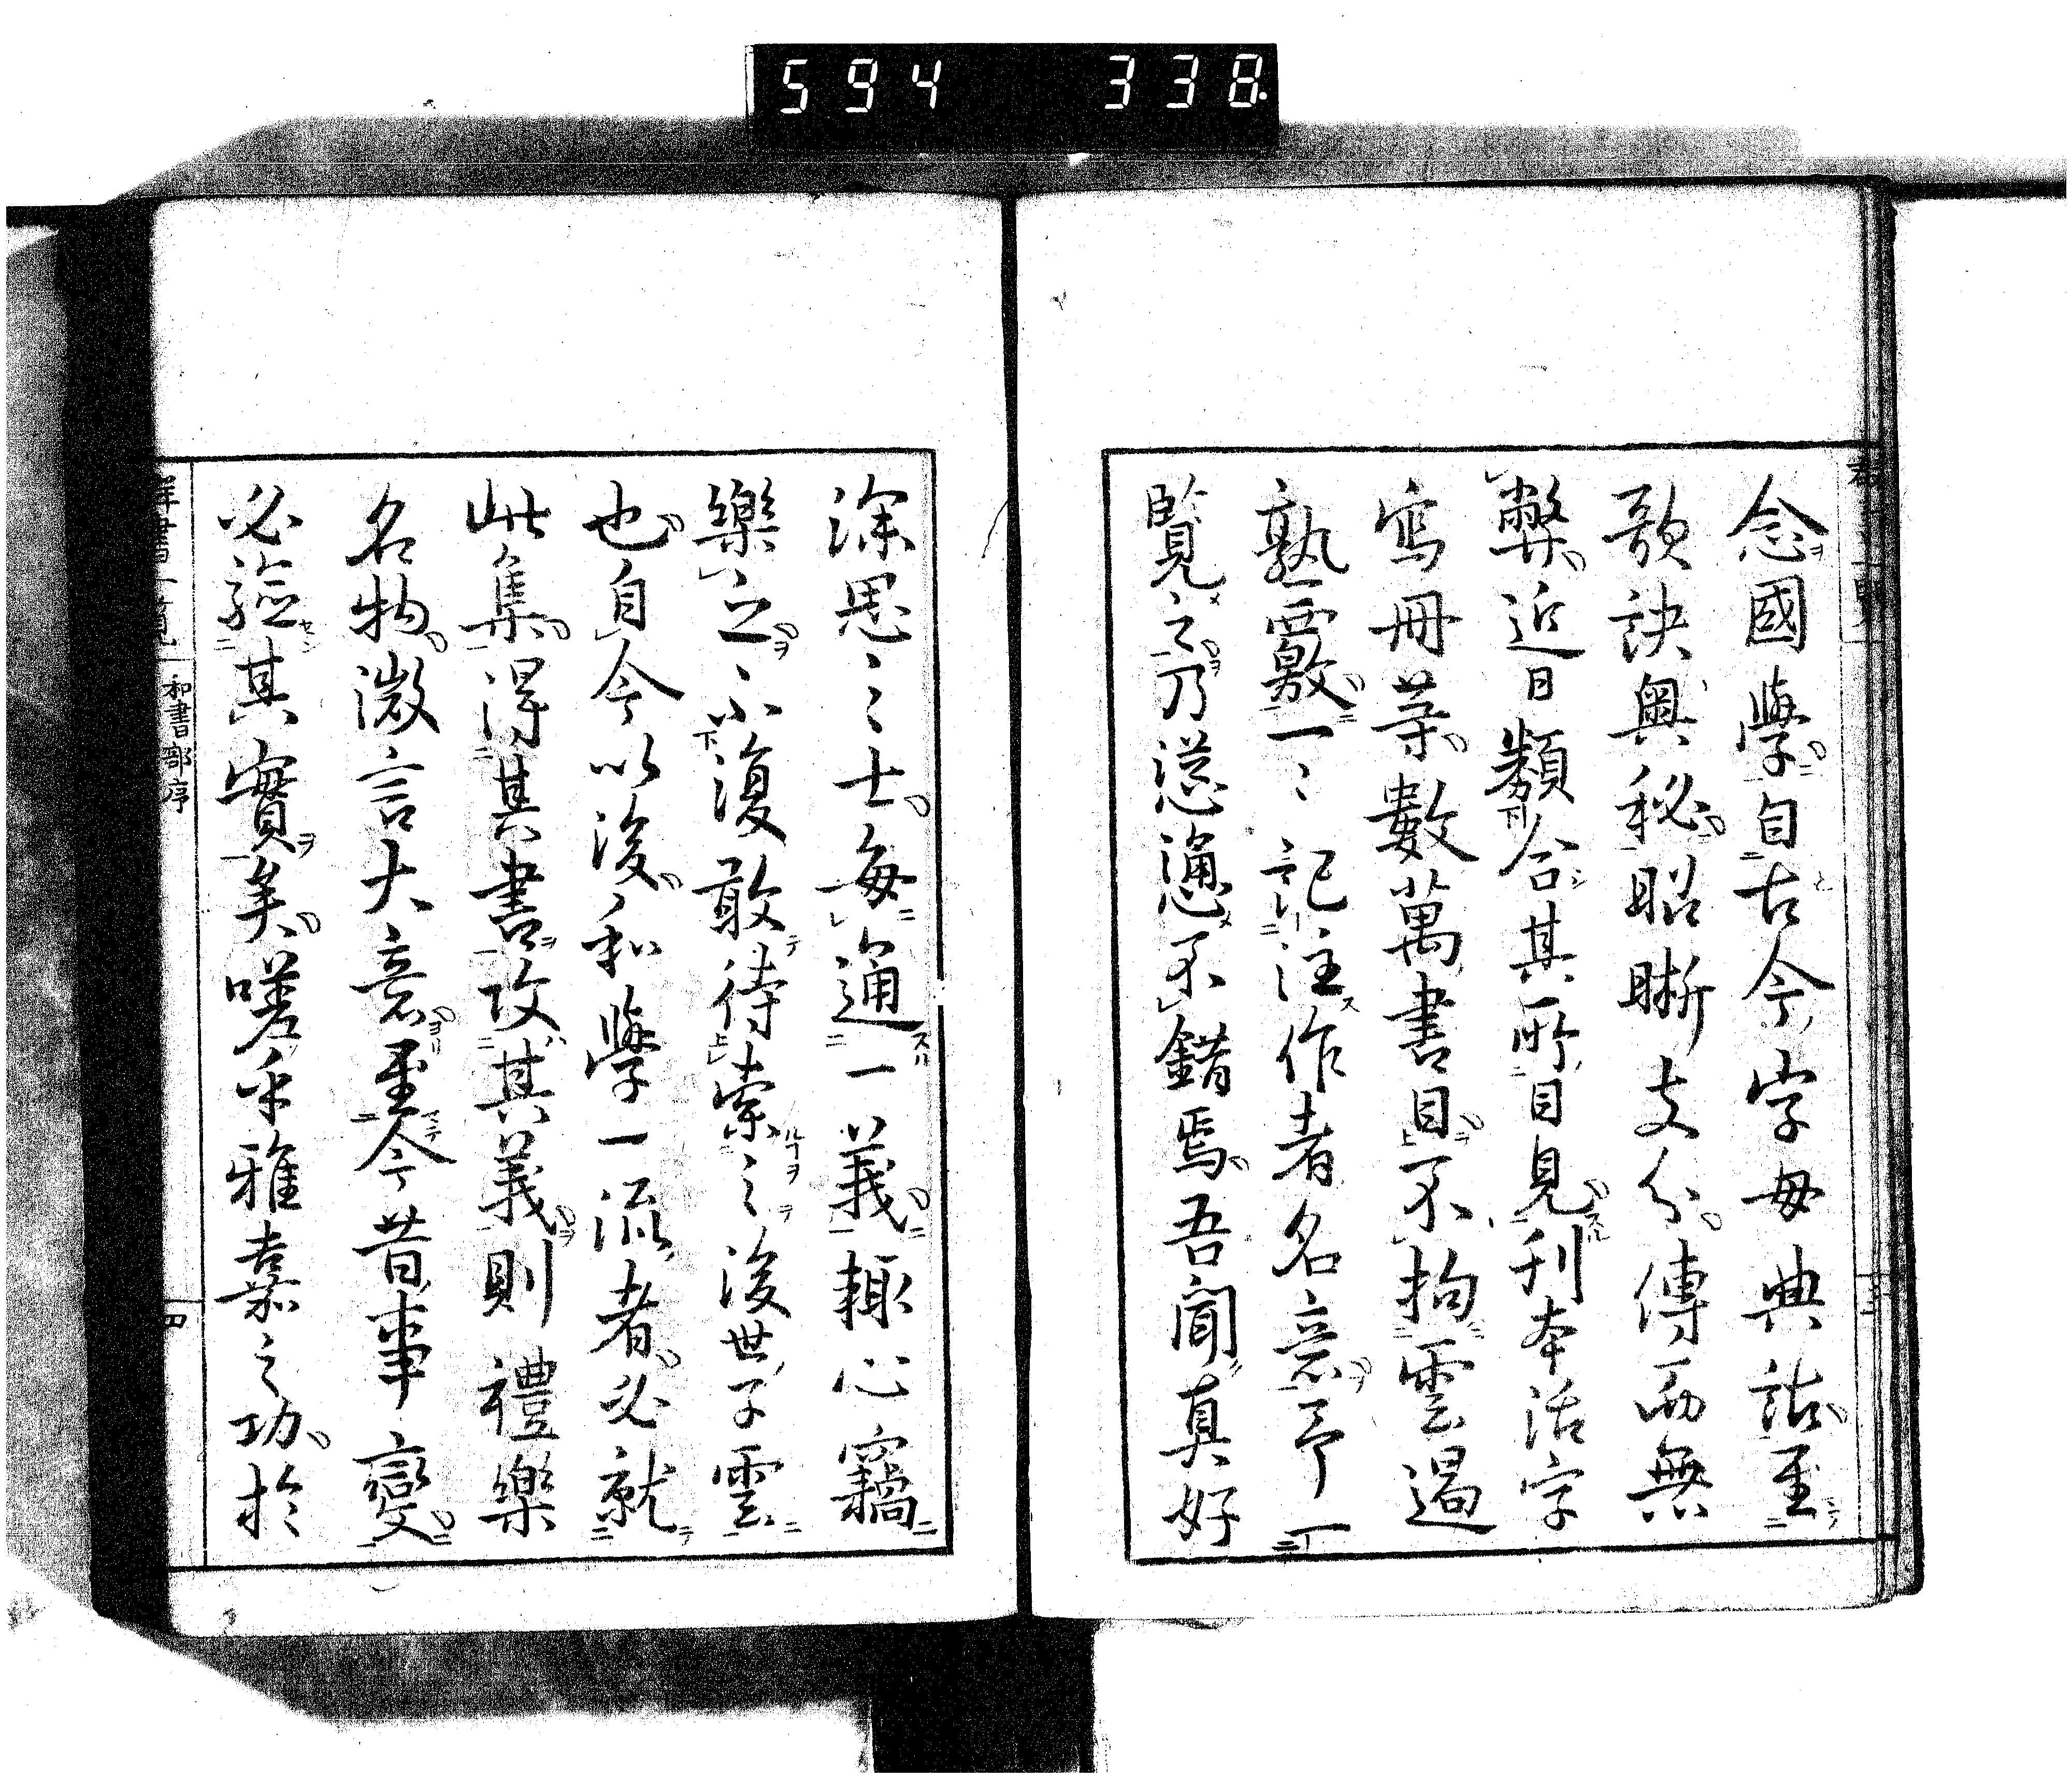 594 338
念國學自古今字母典詁至
歌訣奧秘昭晰支分傳而無
弊近日類合其所目見刊本活字
寫冊葉數萬書目不拘雲遏
熟覈一〻記注作者名意予一
覧之乃慫慂不錯焉吾聞真好
深思之士每通一義輙心竊
樂之不復敢待索之後世子雲
也自今以後和學一流者必就
此集得其書攻其義則禮樂
名物微言大意至今昔事變
必驗其實矣嗟乎雅嘉之功於
群書一覧 和書部序 四